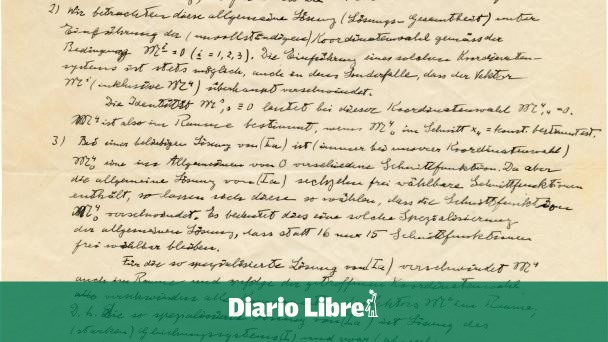 2) Wir betrachten diese allgemeine Lösung (Lösungs-Gesamtheit) unter
Einführung der (unvollständigen) Koordinatenwahl gemäss der
Bedingung 𝔐ⁱ = 0 (i = 1,2,3). Die Einführung eines solchen Koordinaten-
systems ist stets möglich, auch in dem Sonderfalle, dass der Vektor
𝔐ˢ (inklusive 𝔐⁴) überhaupt verschwindet.
Die Identität 𝔐ˢ,ₛ ≡ 0 lautet bei dieser Koordinatenwahl 𝔐⁴,₄ = 0.
𝔐⁴ ist also im Raume bestimmt, wenn 𝔐⁴₀ im Schnitt x₄ = konst. bestimmt ist.
3) Bei einer beliebigen Lösung von (Ia) ist (immer bei unserer Koordinatenwahl)
𝔐⁴₀ eine im Allgemeinen von 0 verschiedene Schnittfunktion. Da aber
die allgemeine Lösung von (Ia) sechzehn frei wählbare Schnittfunktionen
enthält, so lassen sich diese so wählen, dass die Schnittfunktion
𝔐⁴₀ verschwindet. Es bedeutet dies eine solche Spezialisierung
der allgemeinen Lösung, dass statt 16 nur 15 Schnittfunktionen
frei wählbar bleiben.
Für die so spezialisierte Lösung von (Ia) verschwindet 𝔐⁴
auch im Raume und zufolge der getroffenen Koordinatenwahl
im Raume,
Diario Libre
D. h. die so spezialisierte Lösung von (Ia) ist Lösung des
(starken) Gleichungssystems (I) und